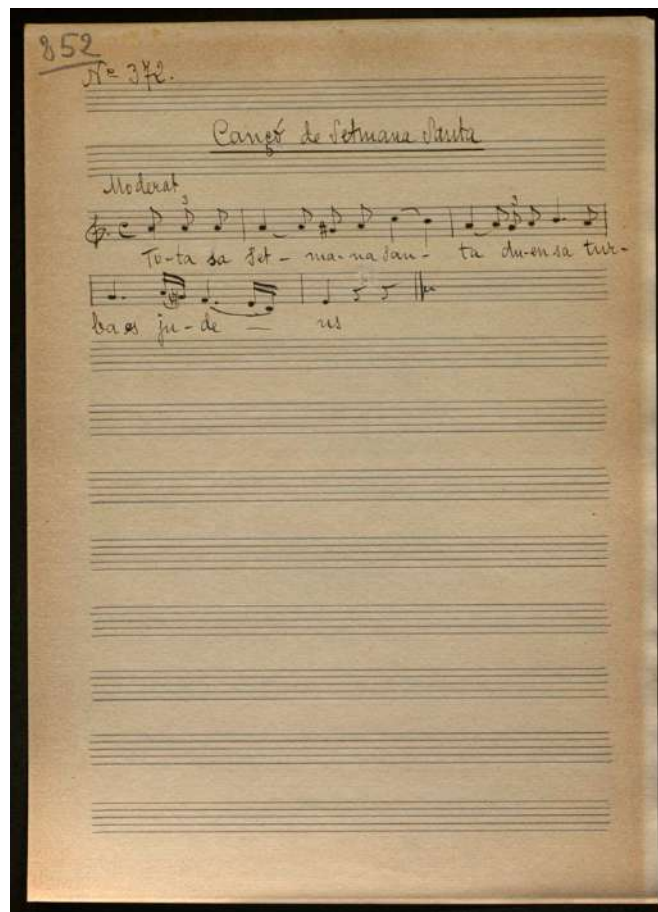 852
Nº 372.
Cançó de Setmana Santa
Moderat
3 3
To-ta sa Set - ma-na San - ta du-en sa tur-
ba es ju - de — us